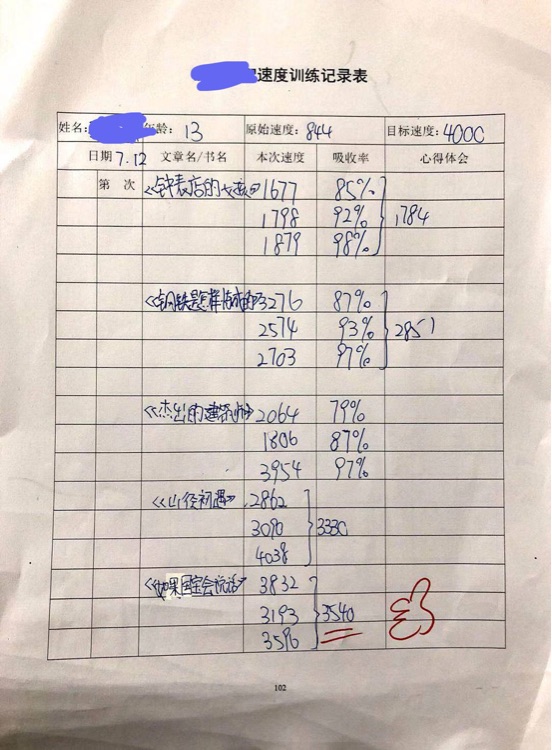 速度训练记录表
姓名: 年龄: 13 原始速度: 844 目标速度: 4000
日期 7.12 文章名/书名 本次速度 吸收率 心得体会
第 次 《钟表店的 》 1677 85%
1798 92% 1784
1879 98%
《钢铁是怎样炼成的》 3276 87%
2574 93% 2851
2703 97%
《杰出的建筑师》 2064 79%
1806 87%
3954 97%
《山径初遇》 2862
3090 3330
4038
《如果国宝会说话》 3832
3193 3540
3596
102